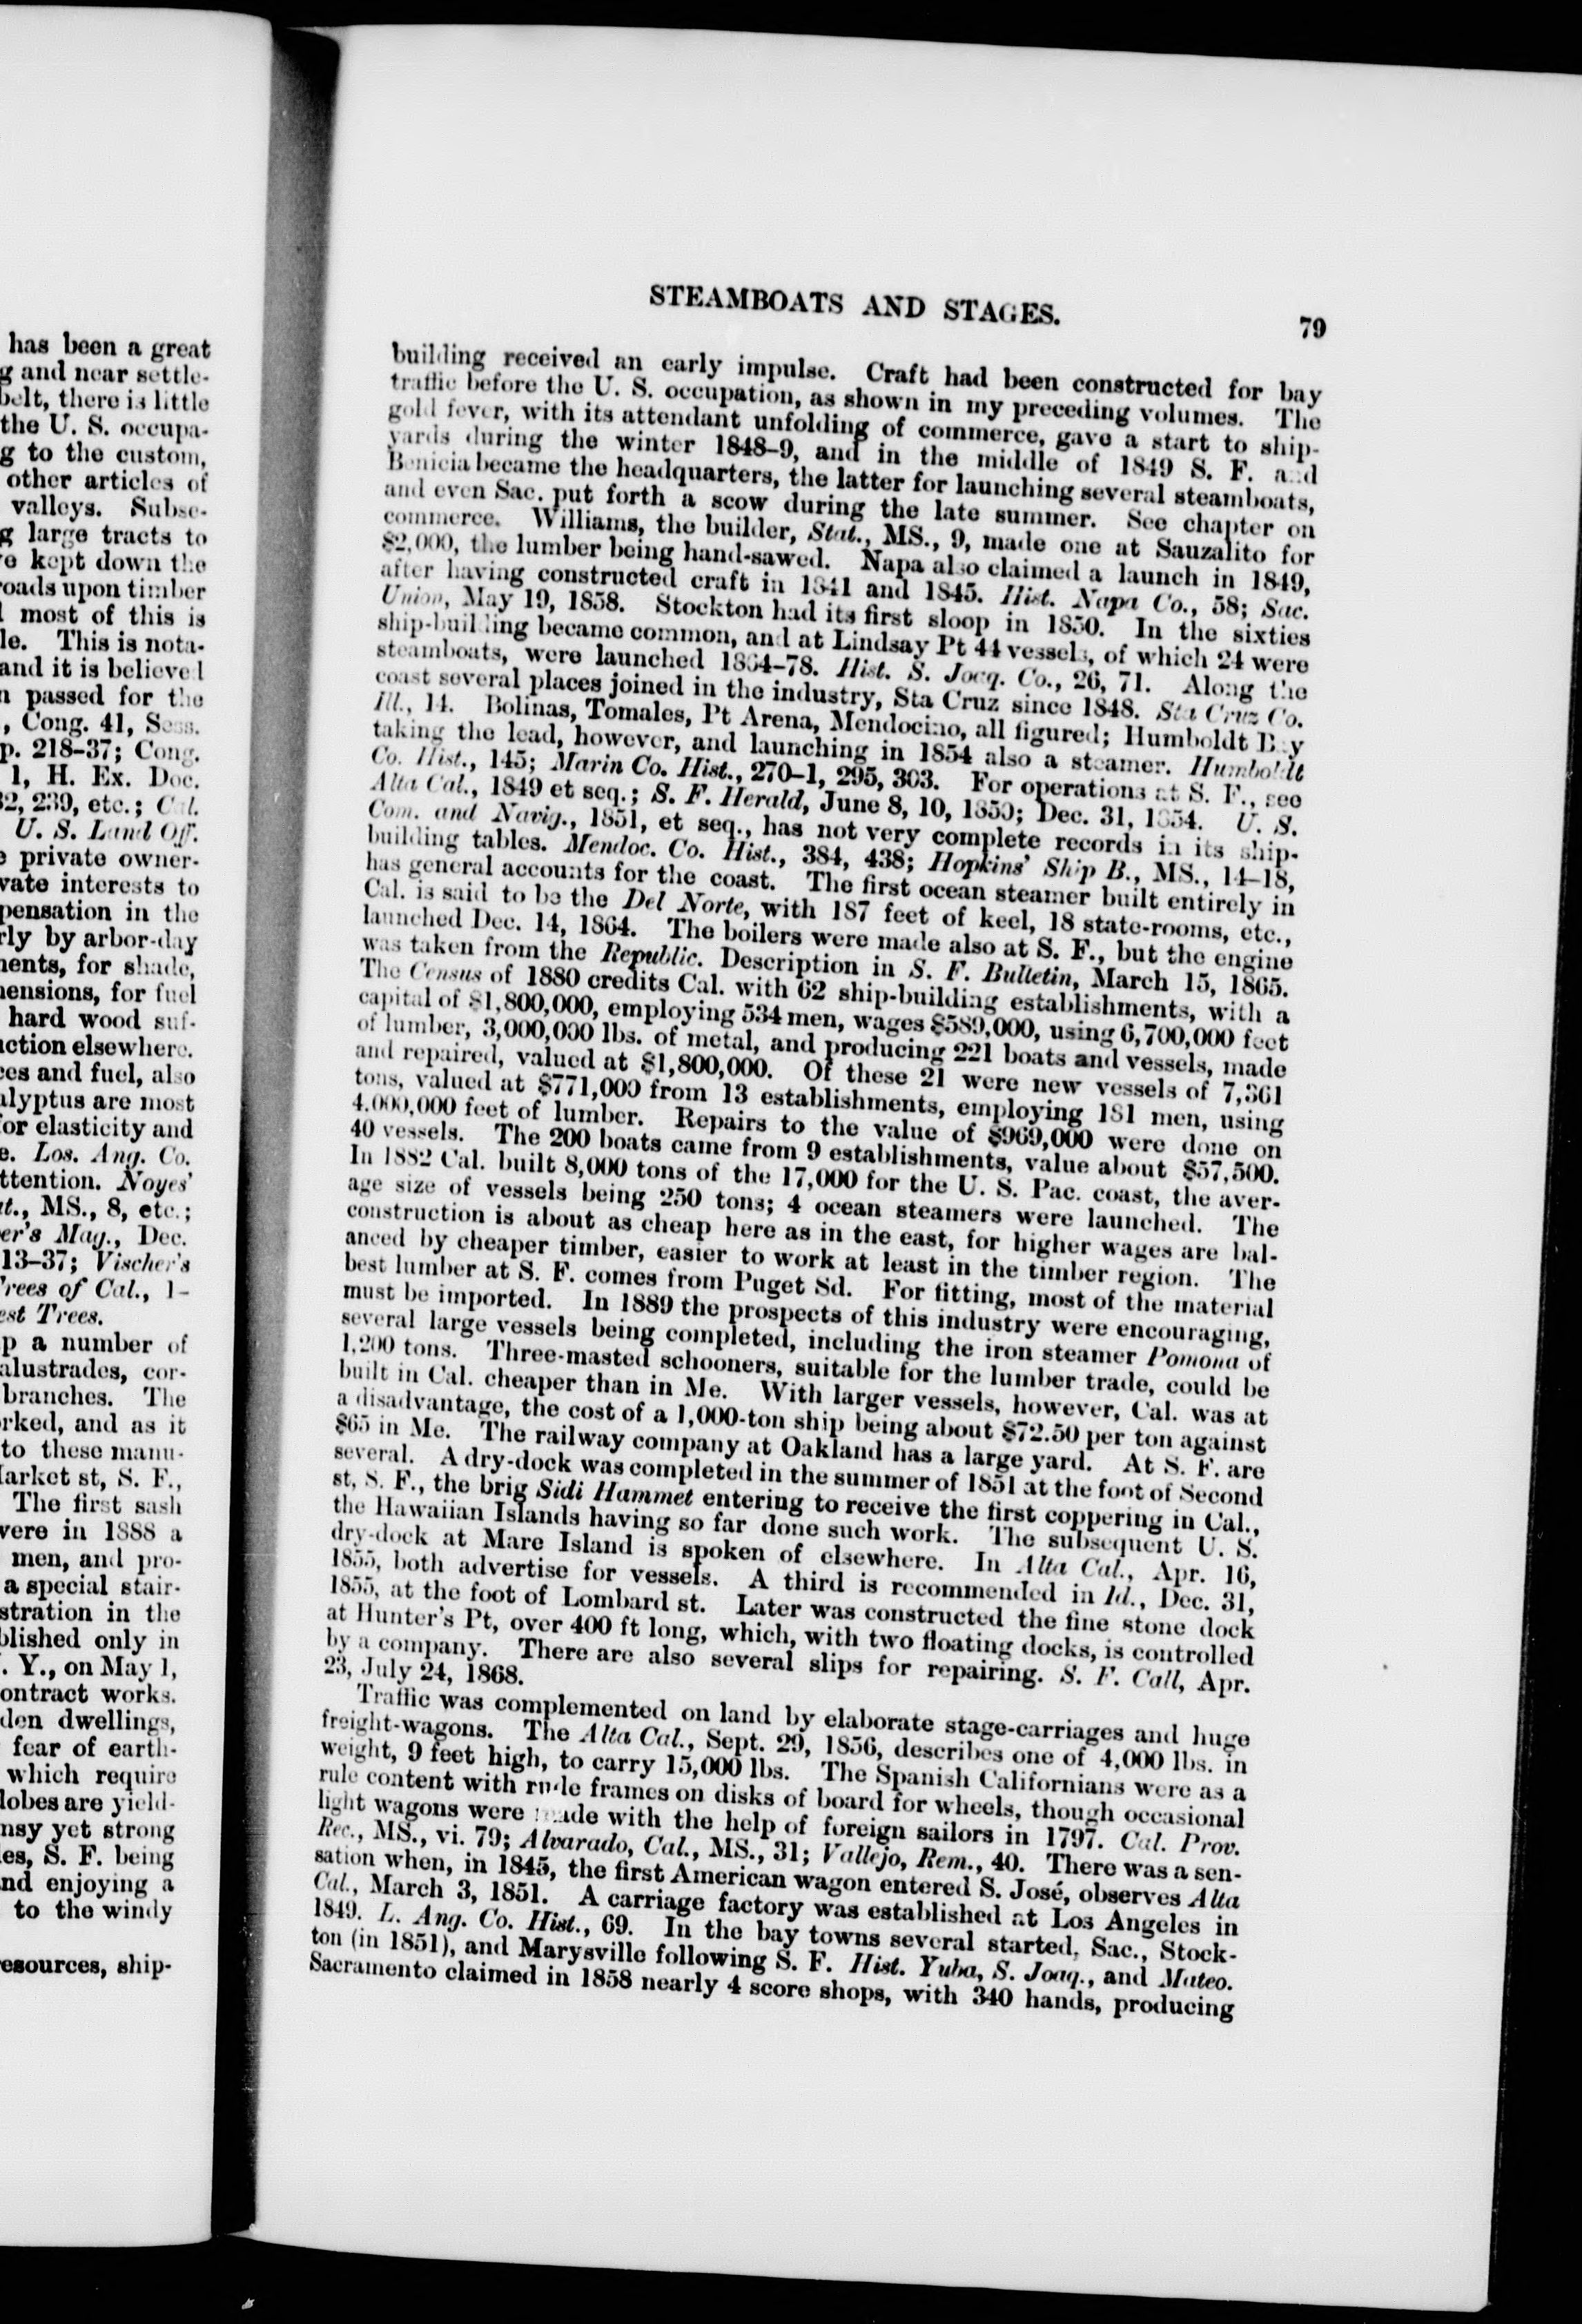 has been a great
g and near settle-
belt, there is little
the U. S. occupa-
g to the custom,
other articles of
valleys. Subse-
g large tracts to
e kept down the
roads upon timber
most of this is
le. This is nota-
and it is believed
n passed for the
, Cong. 41, Sess.
p. 218-37; Cong.
1, H. Ex. Doc.
32, 239, etc.; Cal.
U. S. Land Off.
e private owner-
vate interests to
pensation in the
rly by arbor-day
ments, for shade,
mensions, for fuel
hard wood suf-
action elsewhere.
ces and fuel, also
alyptus are most
for elasticity and
e. Los. Ang. Co.
ttention. Noyes'
at., MS., 8, etc.;
er's Mag., Dec.
13-37; Vischer's
Trees of Cal., 1-
est Trees.
p a number of
alustrades, cor-
branches. The
orked, and as it
to these manu-
Market st, S. F.,
The first sash
were in 1888 a
men, and pro-
a special stair-
stration in the
blished only in
. Y., on May 1,
ontract works.
den dwellings,
fear of earth-
which require
dobes are yield-
nsy yet strong
es, S. F. being
nd enjoying a
to the windy
esources, ship-
STEAMBOATS AND STAGES. 79
building received an early impulse. Craft had been constructed for bay
traffic before the U. S. occupation, as shown in my preceding volumes. The
gold fever, with its attendant unfolding of commerce, gave a start to ship-
yards during the winter 1848-9, and in the middle of 1849 S. F. and
Benicia became the headquarters, the latter for launching several steamboats,
and even Sac. put forth a scow during the late summer. See chapter on
commerce. Williams, the builder, Stat., MS., 9, made one at Sauzalito for
$2,000, the lumber being hand-sawed. Napa also claimed a launch in 1849,
after having constructed craft in 1841 and 1845. Hist. Napa Co., 58; Sac.
Union, May 19, 1858. Stockton had its first sloop in 1850. In the sixties
ship-building became common, and at Lindsay Pt 44 vessels, of which 24 were
steamboats, were launched 1864-78. Hist. S. Joaq. Co., 26, 71. Along the
coast several places joined in the industry, Sta Cruz since 1848. Sta Cruz Co.
Ill., 14. Bolinas, Tomales, Pt Arena, Mendocino, all figured; Humboldt Bay
taking the lead, however, and launching in 1854 also a steamer. Humboldt
Co. Hist., 145; Marin Co. Hist., 270-1, 295, 303. For operations at S. F., see
Alta Cal., 1849 et seq.; S. F. Herald, June 8, 10, 1850; Dec. 31, 1854. U. S.
Com. and Navig., 1851, et seq., has not very complete records in its ship-
building tables. Mendoc. Co. Hist., 384, 438; Hopkins' Ship B., MS., 14-18,
has general accounts for the coast. The first ocean steamer built entirely in
Cal. is said to be the Del Norte, with 187 feet of keel, 18 state-rooms, etc.,
launched Dec. 14, 1864. The boilers were made also at S. F., but the engine
was taken from the Republic. Description in S. F. Bulletin, March 15, 1865.
The Census of 1880 credits Cal. with 62 ship-building establishments, with a
capital of $1,800,000, employing 534 men, wages $589,000, using 6,700,000 feet
of lumber, 3,000,000 lbs. of metal, and producing 221 boats and vessels, made
and repaired, valued at $1,800,000. Of these 21 were new vessels of 7,361
tons, valued at $771,000 from 13 establishments, employing 181 men, using
4,000,000 feet of lumber. Repairs to the value of $969,000 were done on
40 vessels. The 200 boats came from 9 establishments, value about $57,500.
In 1882 Cal. built 8,000 tons of the 17,000 for the U. S. Pac. coast, the aver-
age size of vessels being 250 tons; 4 ocean steamers were launched. The
construction is about as cheap here as in the east, for higher wages are bal-
anced by cheaper timber, easier to work at least in the timber region. The
best lumber at S. F. comes from Puget Sd. For fitting, most of the material
must be imported. In 1889 the prospects of this industry were encouraging,
several large vessels being completed, including the iron steamer Pomona of
1,200 tons. Three-masted schooners, suitable for the lumber trade, could be
built in Cal. cheaper than in Me. With larger vessels, however, Cal. was at
a disadvantage, the cost of a 1,000-ton ship being about $72.50 per ton against
$65 in Me. The railway company at Oakland has a large yard. At S. F. are
several. A dry-dock was completed in the summer of 1851 at the foot of Second
st, S. F., the brig Sidi Hammet entering to receive the first coppering in Cal.,
the Hawaiian Islands having so far done such work. The subsequent U. S.
dry-dock at Mare Island is spoken of elsewhere. In Alta Cal., Apr. 16,
1855, both advertise for vessels. A third is recommended in Id., Dec. 31,
1855, at the foot of Lombard st. Later was constructed the fine stone dock
at Hunter's Pt, over 400 ft long, which, with two floating docks, is controlled
by a company. There are also several slips for repairing. S. F. Call, Apr.
23, July 24, 1868.
Traffic was complemented on land by elaborate stage-carriages and huge
freight-wagons. The Alta Cal., Sept. 29, 1856, describes one of 4,000 lbs. in
weight, 9 feet high, to carry 15,000 lbs. The Spanish Californians were as a
rule content with rude frames on disks of board for wheels, though occasional
light wagons were made with the help of foreign sailors in 1797. Cal. Prov.
Rec., MS., vi. 79; Alvarado, Cal., MS., 31; Vallejo, Rem., 40. There was a sen-
sation when, in 1845, the first American wagon entered S. José, observes Alta
Cal., March 3, 1851. A carriage factory was established at Los Angeles in
1849. L. Ang. Co. Hist., 69. In the bay towns several started, Sac., Stock-
ton (in 1851), and Marysville following S. F. Hist. Yuba, S. Joaq., and Mateo.
Sacramento claimed in 1858 nearly 4 score shops, with 340 hands, producing